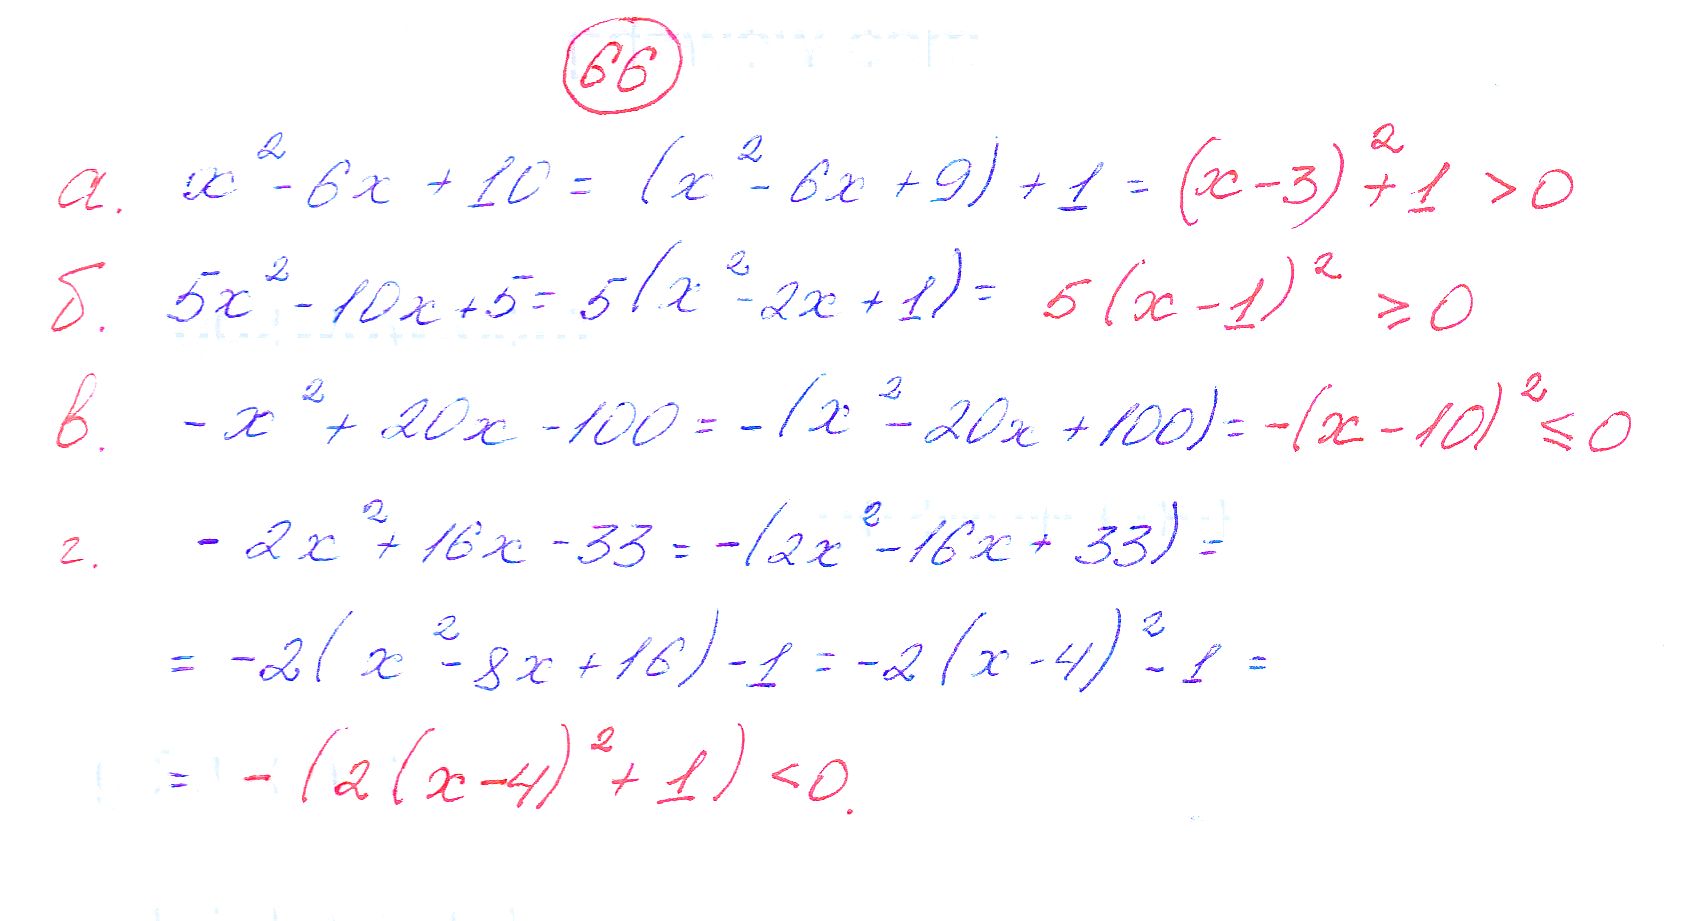 66
а. x² - 6x + 10 = (x² - 6x + 9) + 1 = (x - 3)² + 1 > 0
б. 5x² - 10x + 5 = 5(x² - 2x + 1) = 5(x - 1)² ≥ 0
в. - x² + 20x - 100 = -(x² - 20x + 100) = -(x - 10)² ≤ 0
г. - 2x² + 16x - 33 = -(2x² - 16x + 33) =
= -2(x² - 8x + 16) - 1 = -2(x - 4)² - 1 =
= -(2(x - 4)² + 1) < 0.